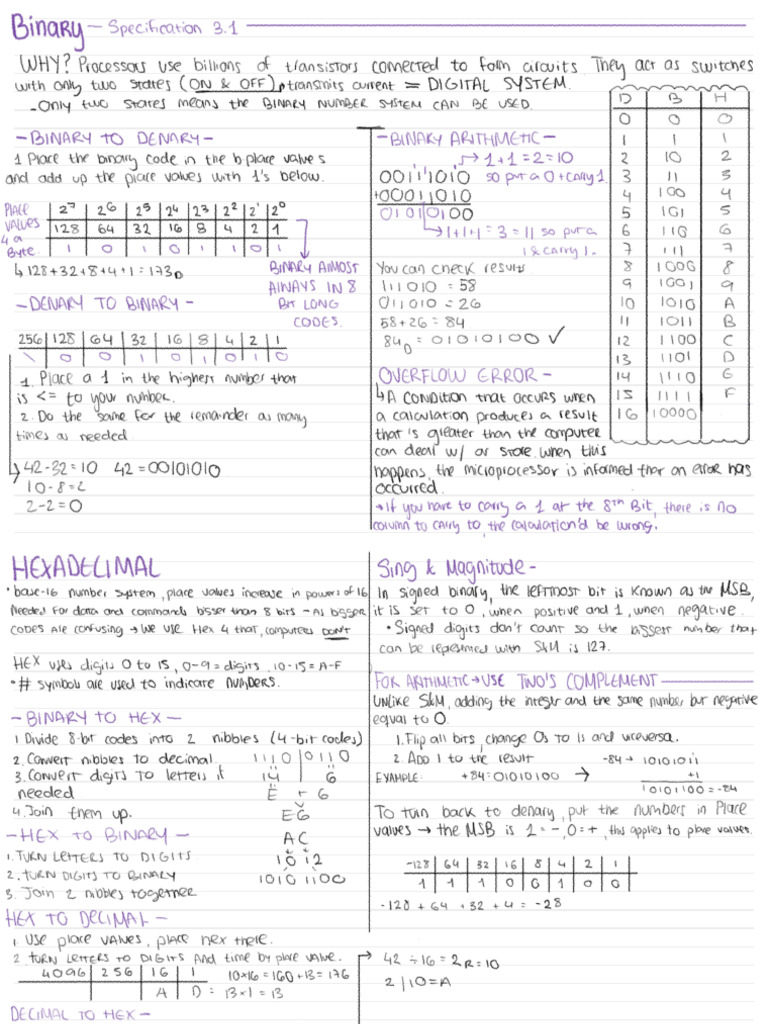 Binary - Specification 3.1
WHY? Processors use billions of transistors connected to form circuits. They act as switches
with only two states (ON & OFF), transmits current = DIGITAL SYSTEM.
- Only two states means the BINARY NUMBER SYSTEM CAN BE USED.
D B H
0 0 0
1 1 1
2 10 2
3 11 3
4 100 4
5 101 5
6 110 6
7 111 7
8 1000 8
9 1001 9
10 1010 A
11 1011 B
12 1100 C
13 1101 D
14 1110 E
15 1111 F
16 10000
- BINARY TO DENARY -
1 Place the binary code in the b place values
and add up the place values with 1's below.
PLACE VALUES 4 a Byte.
2⁷ 2⁶ 2⁵ 2⁴ 2³ 2² 2¹ 2⁰
128 64 32 16 8 4 2 1
1 0 1 0 1 1 0 1
↳ 128+32+8+4+1=173D
BINARY ALMOST
ALWAYS IN 8
BIT LONG
CODES.
- DENARY TO BINARY -
256 128 64 32 16 8 4 2 1
\ 0 0 1 0 1 0 1 0
1. Place a 1 in the highest number that
is <= to your number.
2. Do the same for the remainder as many
times as needed.
42-32=10 42=00101010
10-8=2
2-2=0
- BINARY ARITHMETIC -
→ 1+1=2=10
00111010 so put a 0 + carry 1.
+00011010
01010100
→ 1+1+1=3=11 so put a
1 & carry 1.
You can check results
111010=58
011010=26
58+26=84
84D=01010100 ✓
OVERFLOW ERROR -
↳ A CONDITION that occurs when
a calculation produces a result
that's greater than the computer
can deal w/ or store. when this
happens, the microprocessor is informed that an error has
occurred.
→ If you have to carry a 1 at the 8th Bit, there is no
column to carry to, the calculation'd be wrong.
HEXADECIMAL
• base-16 number system, place values increase in powers of 16
Needed for data and commands bigger than 8 bits - As bigger
CODES ARE confusing → We use Hex 4 that, computers DON'T
HEX uses digits 0 to 15, 0-9 = digits, 10-15 = A-F
• # symbols are used to indicate numbers.
- BINARY TO HEX -
1 Divide 8-bit codes into 2 nibbles (4-bit codes)
2. Convert nibbles to decimal 1110 | 0110
3. Convert digits to letters if 14 6
needed E + 6
4. Join them up. E6
- HEX TO BINARY - AC
1. TURN LETTERS TO DIGITS 10 12
2. TURN DIGITS TO BINARY 1010 1100
3. Join 2 nibbles together
HEX TO DECIMAL -
1 Use place values, place hex there.
2 TURN LETTERS TO DIGITS and time by place value.
4096 256 16 1 10×16=160+13=176
A D = 13×1=13
DECIMAL TO HEX -
Sing & Magnitude -
In signed binary, the leftmost bit is known as the MSB,
it is set to 0, when positive and 1, when negative.
• Signed digits don't count so the biggest number that
can be represented with S&M is 127.
FOR ARITHMETIC → USE TWO'S COMPLEMENT
UNLIKE S&M, adding the integer and the same number but negative
equal to 0.
1. Flip all bits, change 0s to 1s and viceversa.
2. Add 1 to the result -84 → 10101011
EXAMPLE: +84=01010100 → +1
10101100=-84
To turn back to denary, put the numbers in Place
values → the MSB is 1 = -, 0 = +, this applies to place values.
-128 64 32 16 8 4 2 1
1 1 1 0 0 1 0 0
-128 + 64 + 32 + 4 = -28
42 ÷ 16 = 2 R=10
2 / 10 = A